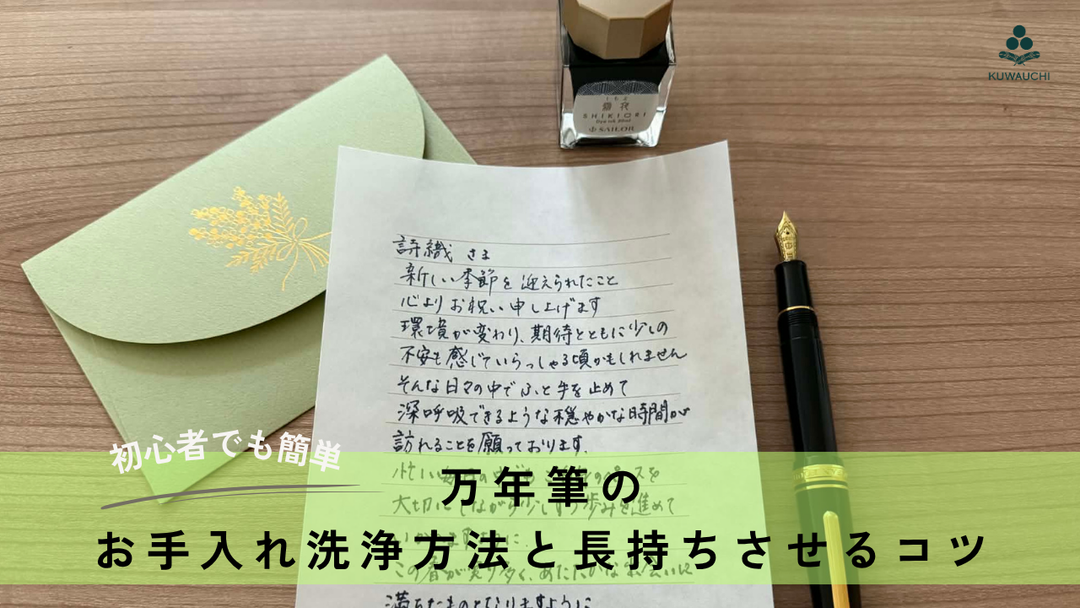 KUWAUCHI
SHIKIORI
SAILOR
詩織 さま
新しい季節を迎えられたこと
心よりお祝い申し上げます
環境が変わり、期待とともに少しの
不安も感じていらっしゃる頃かもしれません
そんな日々の中でふと手を止めて
深呼吸できるような穏やかな時間が
訪れることを願っております。
初心者でも簡単
万年筆の
大切にしながら 歩みを進めて
お手入れ洗浄方法と長持ちさせるコツ
満ちたものとなりますように